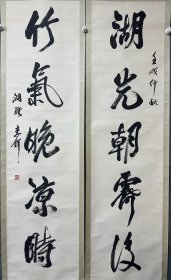 湖光朝霽後
壬戌仲秋
竹氣晚凉時